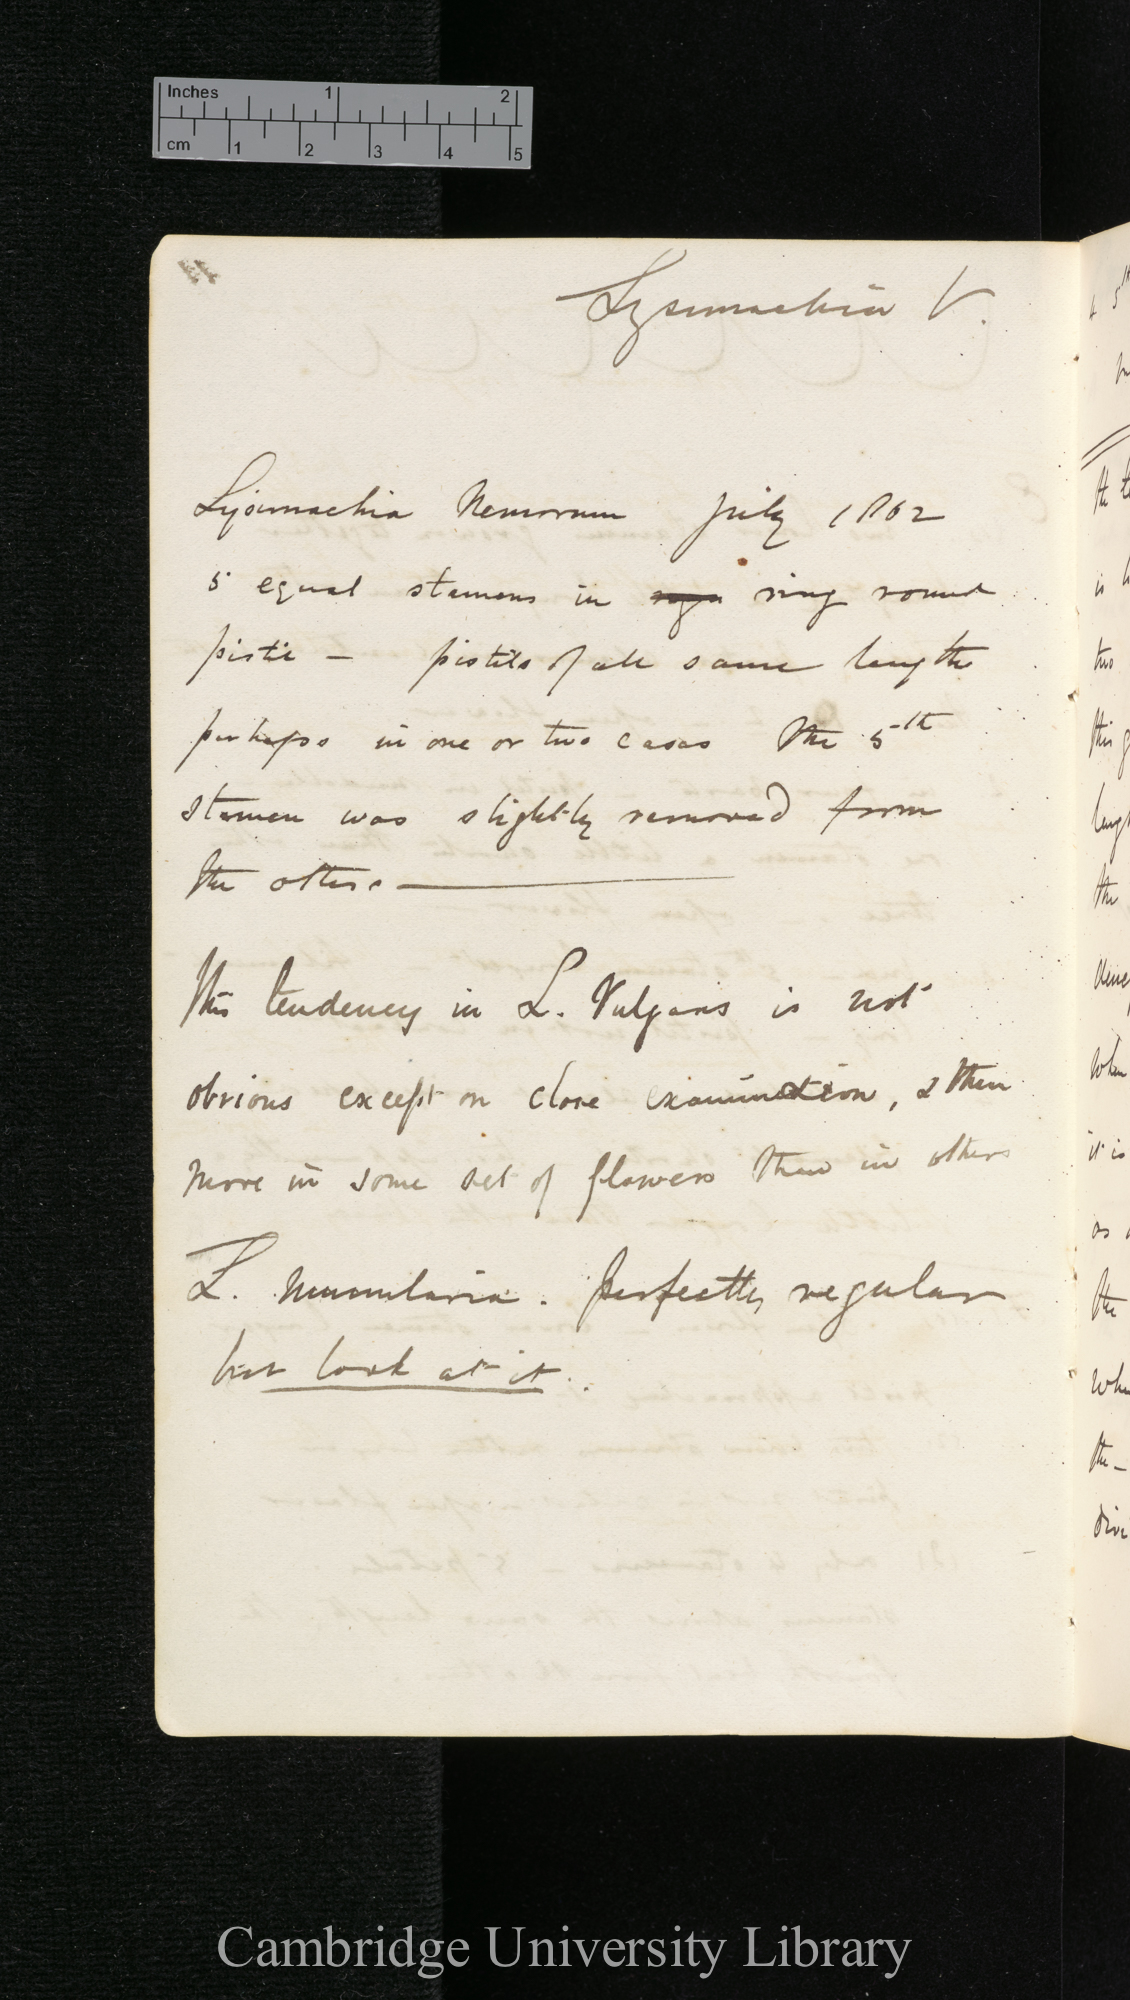 Inches 1 2
cm 1 2 3 4 5
Lysimachia V.
Lysimachia Nemorum July 1862
5 equal stamens in ring round
pistil – pistils of all same length
perhaps in one or two cases the 5th
stamen was slightly removed from
the others —
This tendency in L. Vulgaris is not
obvious except on close examination, & then
more in some set of flowers than in others
L. nummularia. perfectly regular
but look at it.
4 5th
the
is
two
this
the
when
it is
as
the
the –
Cambridge University Library